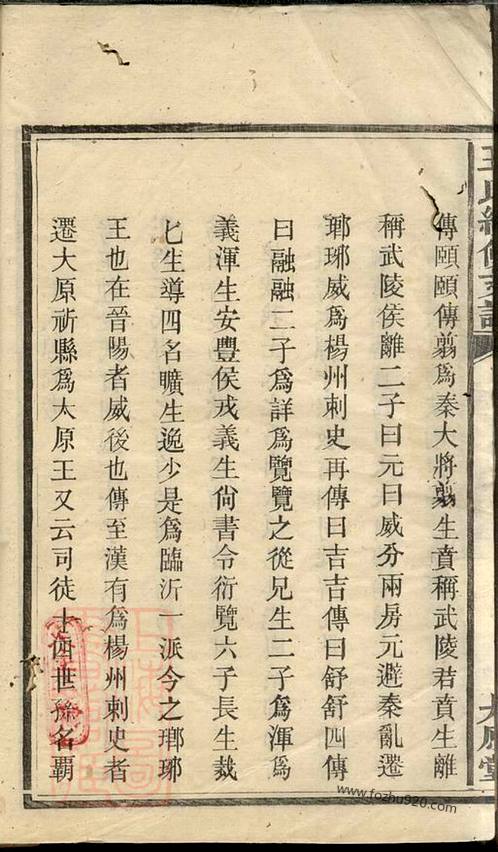 王氏續修支譜
大原堂
傳頤頤傳翦爲秦大將翦生賁稱武陵君賁生離
稱武陵侯離二子曰元曰威分兩房元避秦亂遷
瑯琊威爲楊州刺史再傳曰吉吉傳曰舒舒四傳
曰融融二子爲詳爲覽覽之從兄生二子爲渾爲
義渾生安豐侯戎義生尙書令衍覽六子長生裁
匕生導四名曠生逸少是爲臨沂一派今之瑯琊
王也在晉陽者威後也傳至漢有爲楊州刺史者
遷大原祈縣爲太原王又云司徒十四世孫名覇
www.fozhu920.com